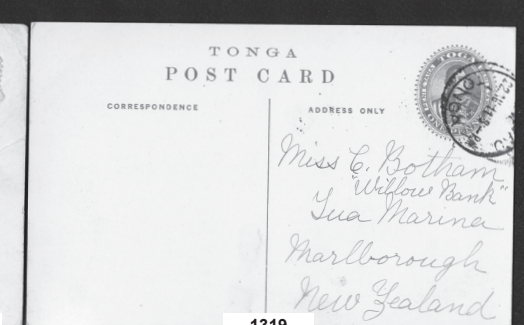 TONGA
POST CARD
CORRESPONDENCE
ADDRESS ONLY
TONGA
Miss C. Botham
"Willow Bank"
Tua Marina
Marlborough
New Zealand
1319